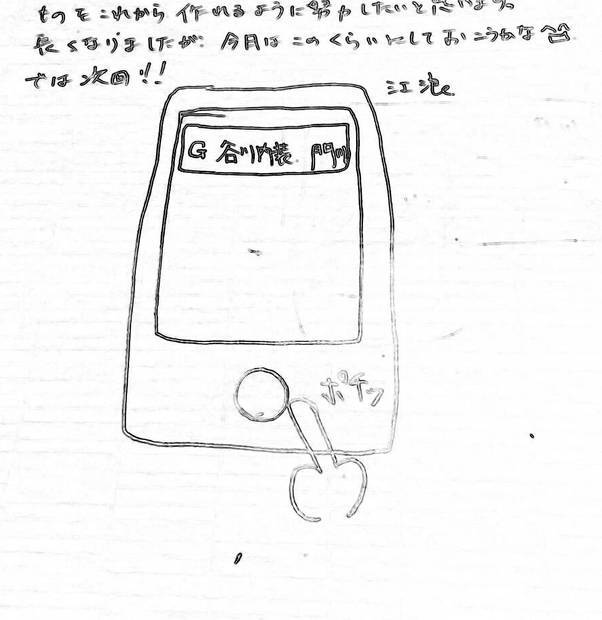 ものをこれから作れるように努力したいと思います。
長くなりましたが、今月はこのくらいにしておこうかな
では次回!!
江滝
G 谷川内装 門川
ポチッ